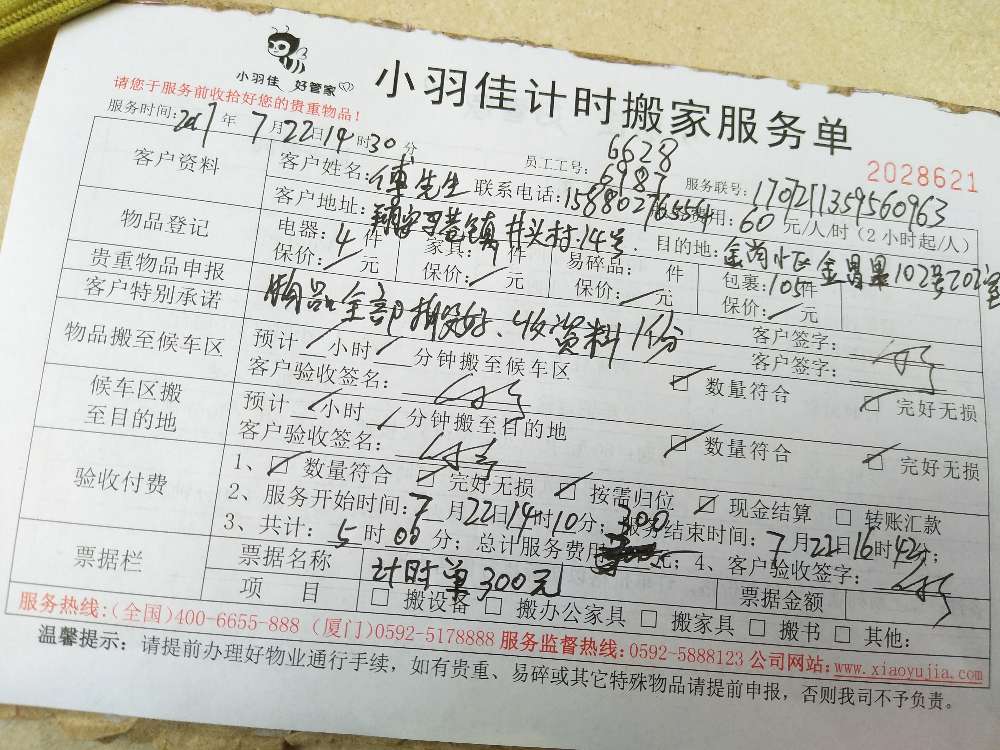 小羽佳 好管家
小羽佳计时搬家服务单
请您于服务前收拾好您的贵重物品!
2028621
服务时间:2017年7月22日14时30分 员工工号:6628 6987 服务联号:1707211359560963
客户资料 客户姓名:傅先生 联系电话:15880276554 费用:60元/人/时(2小时起/人)
客户地址:翔安马巷镇井头村14号. 目的地:金尚小区金昌里102号202室
物品登记 电器:4件 家具:件 易碎品:件 包裹:105件
贵重物品申报 保价:/元 保价:/元 保价:/元 保价:/元
客户特别承诺 物品全部搬好、收资料1份 客户签字:
物品搬至候车区 预计/小时/分钟搬至候车区 客户签字:
客户验收签名: 数量符合 完好无损
候车区搬至目的地 预计/小时/分钟搬至目的地
客户验收签名: 数量符合 完好无损
验收付费 1、数量符合 完好无损 按需归位 现金结算 转账汇款
2、服务开始时间:7月22日14时10分; 服务结束时间:7月22日16时42分;
3、共计:5时00分; 总计服务费用300元; 4、客户验收签字:
票据栏 票据名称 计时单300元 票据金额
项目 搬设备 搬办公家具 搬家具 搬书 其他:
服务热线:(全国)400-6655-888 (厦门)0592-5178888 服务监督热线:0592-5888123 公司网站:www.xiaoyujia.com
温馨提示:请提前办理好物业通行手续,如有贵重、易碎或其它特殊物品请提前申报,否则我司不予负责。